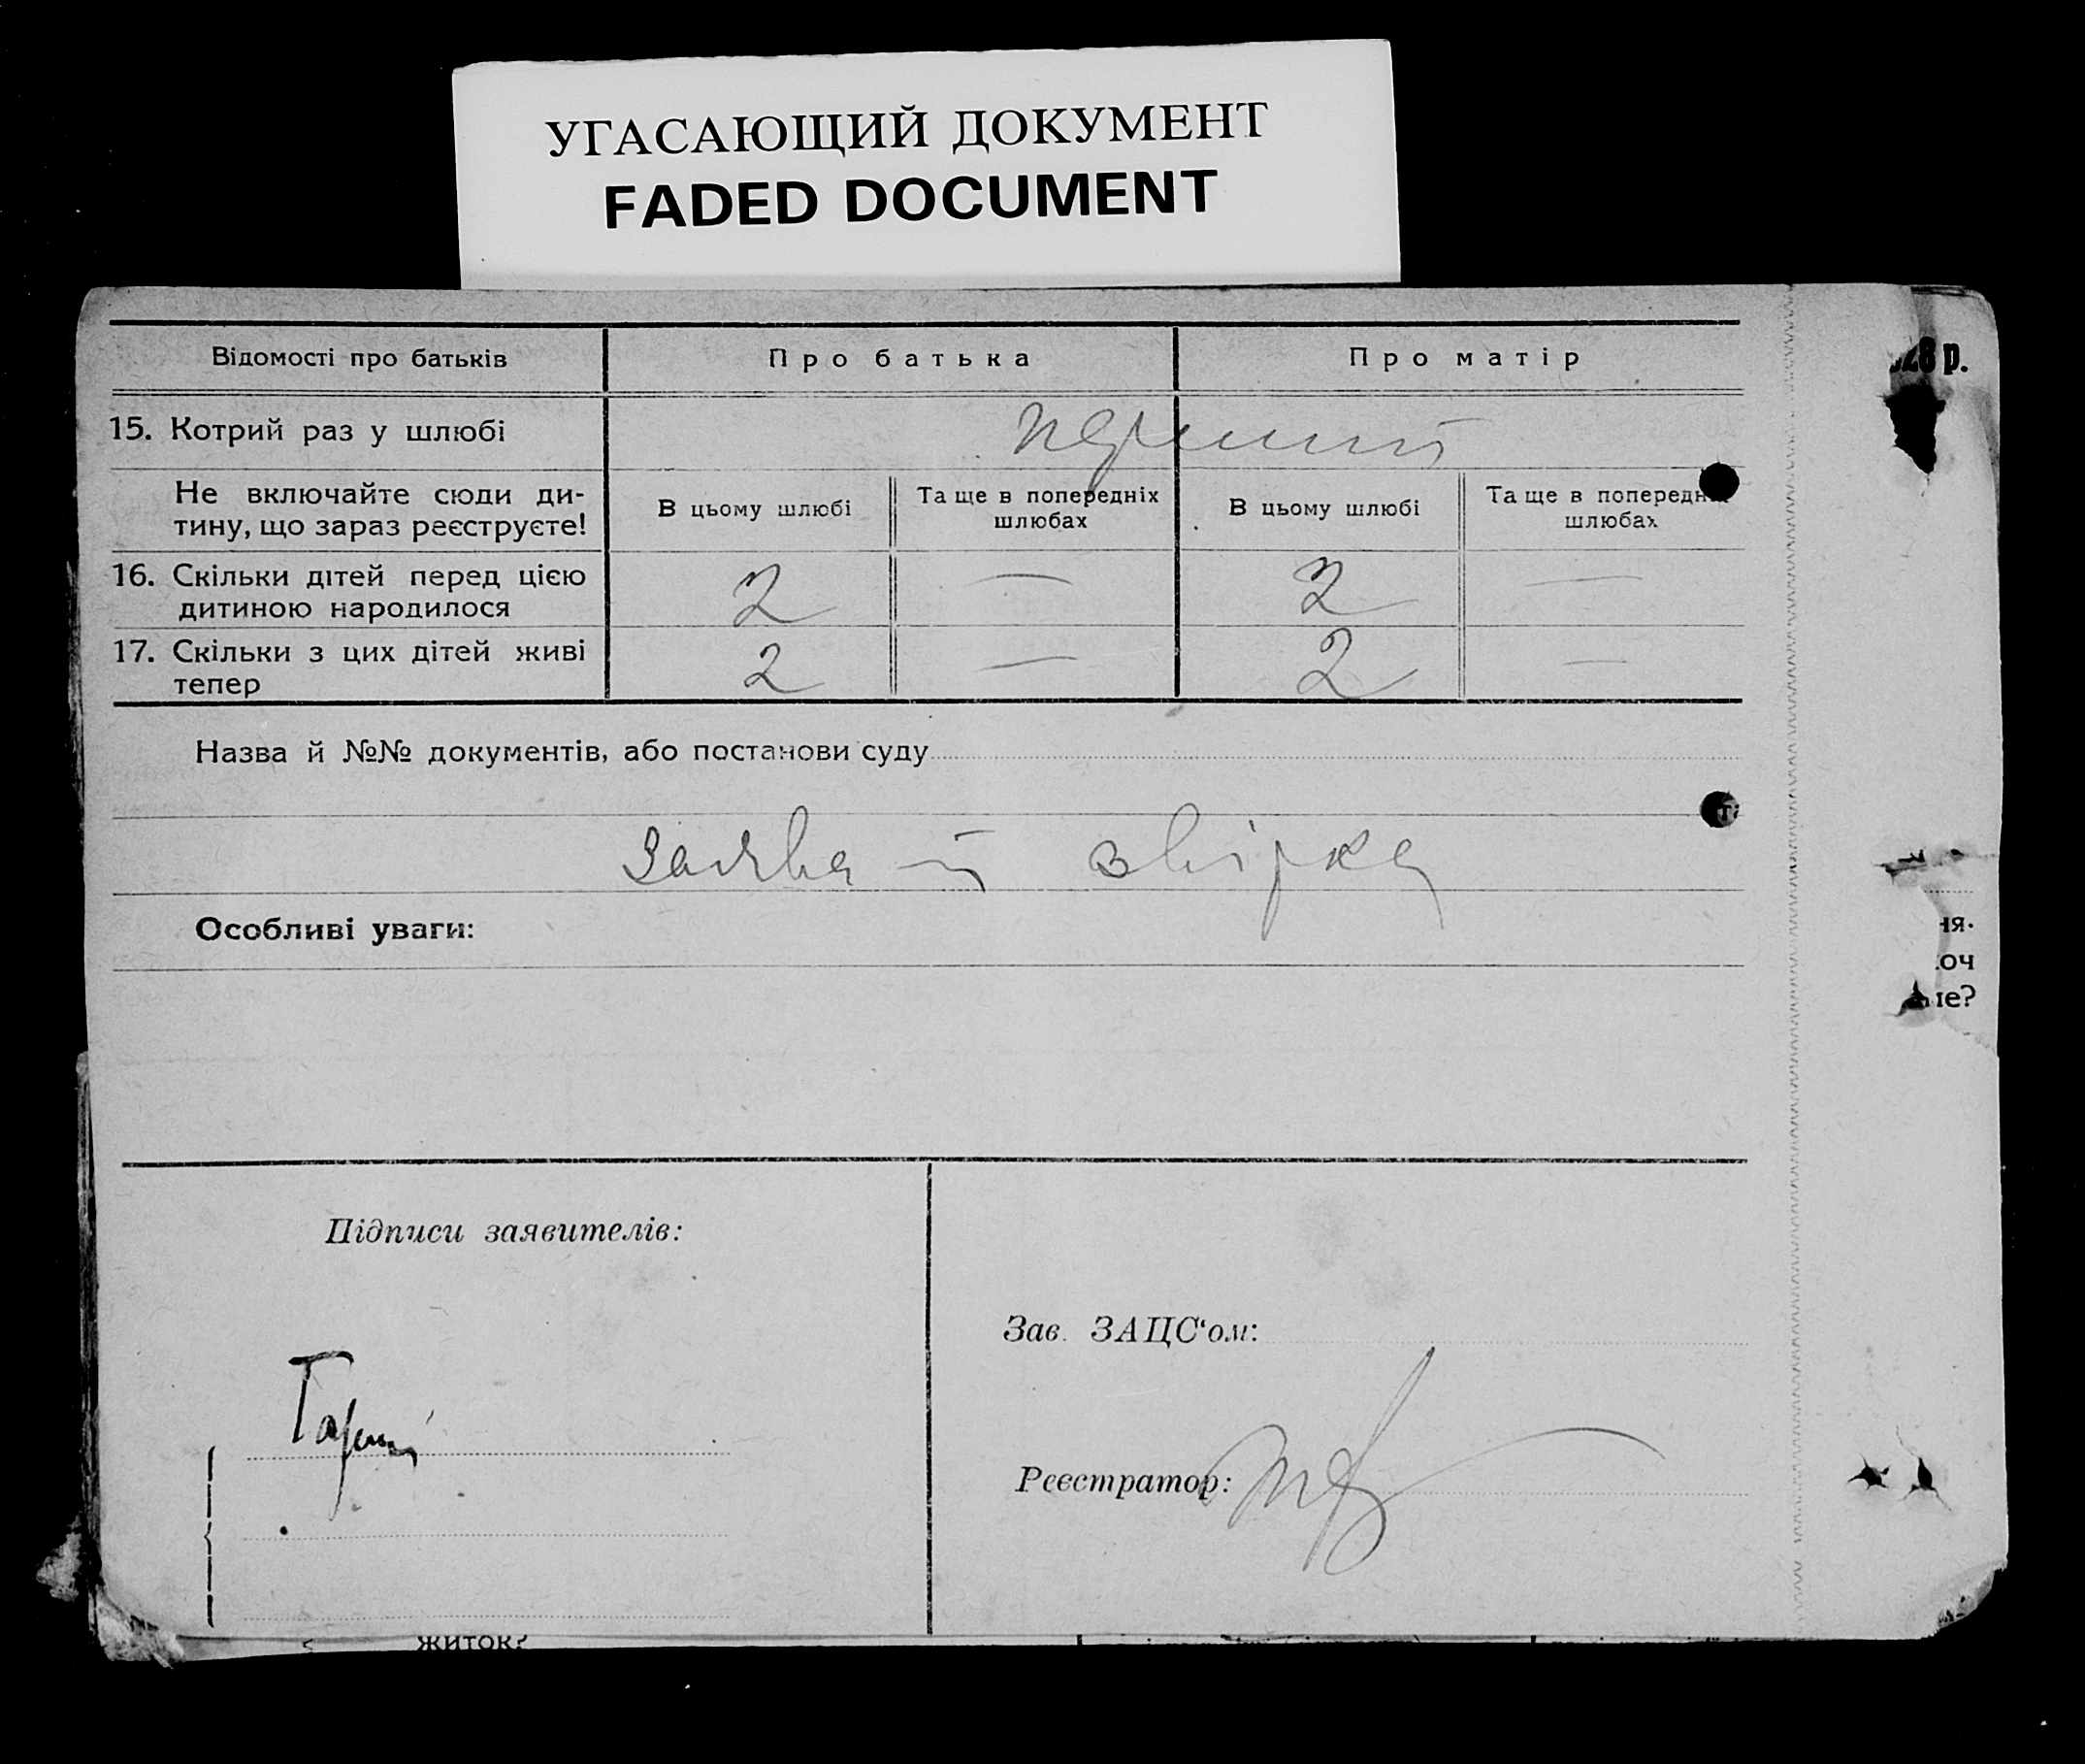 УГАСАЮЩИЙ ДОКУМЕНТ
FADED DOCUMENT
Відомості про батьків
Про батька
Про матір
28 р.
15. Котрий раз у шлюбі
перший
Не включайте сюди ди-
тину, що зараз реєструєте!
В цьому шлюбі
Та ще в попередніх
шлюбах
В цьому шлюбі
Та ще в попередніх
шлюбах
16. Скільки дітей перед цією
дитиною народилося
2 — 2 —
17. Скільки з цих дітей живі
тепер
2 — 2 —
Назва й №№ документів, або постанови суду
заява й звірка
Особливі уваги:
ня.
оч
не?
Підписи заявителів:
Зав. ЗАЦС‘ом:
Реєстратор:
житок?